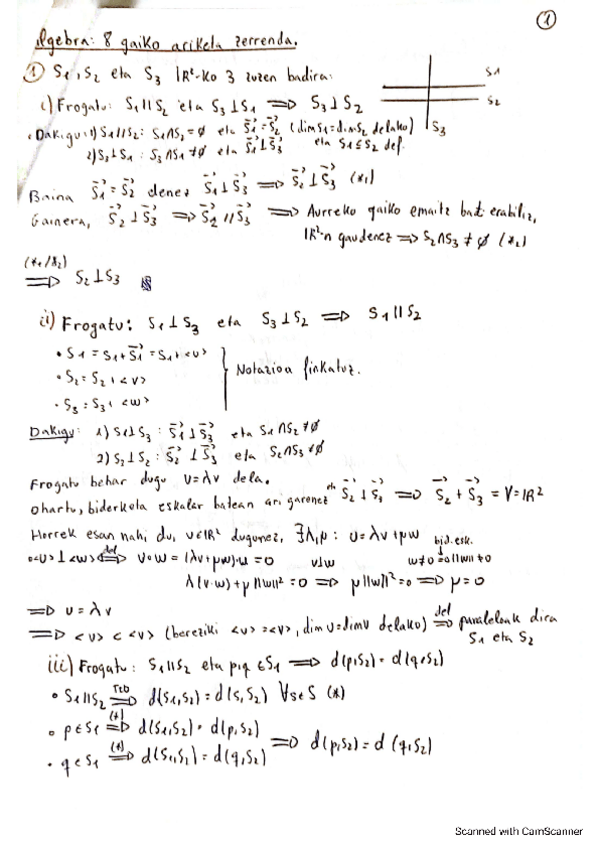 ①
Algebra: 8 gaiko ariketa zerrenda.
① S1, S2 eta S3 ℝ²-ko 3 zuzen badira:
S1
S2
S3
i) Frogatu: S1 ∥ S2 eta S3 ⊥ S1 ⟹ S3 ⊥ S2
• Dakigu: 1) S1 ∥ S2: S1∩S2 = ∅ eta S⃗1 = S⃗2 (dim S1 = dim S2 delako) eta S1 ≤ S2 def.
2) S3 ⊥ S1: S3∩S1 ≠ ∅ eta S⃗1 ⊥ S⃗3
Baina S⃗1 = S⃗2 denez S⃗1 ⊥ S⃗3 ⟹ S⃗2 ⊥ S⃗3 (*1)
Gainera, S⃗2 ⊥ S⃗3 ⟹ S⃗2 ∦ S⃗3 ⟹ Aurreko gaiko emaitz bat erabiliz,
ℝ²-n gaudenez ⟹ S2∩S3 ≠ ∅ (*2)
(*1/*2)
⟹ S2 ⊥ S3
ii) Frogatu: S1 ⊥ S3 eta S3 ⊥ S2 ⟹ S1 ∥ S2
• S1 = s1 + S⃗1 = s1 + <u>
• S2 = s2 + <v>
• S3 = s3 + <w>
Notazioa finkatuz.
Dakigu: 1) S1 ⊥ S3: S⃗1 ⊥ S⃗3 eta S1∩S3 ≠ ∅
2) S3 ⊥ S2: S⃗2 ⊥ S⃗3 eta S2∩S3 ≠ ∅
Frogatu behar dugu u = λv dela.
Ohartu, biderkola eskalar batean ari garenez eta S⃗2 ⊥ S⃗3 ⟹ S⃗2 + S⃗3 = V = ℝ²
Horrek esan nahi du, u∈ℝ² dugunez, ∃λ,μ: u = λv + μw
<u> ⊥ <w> ⟺(def) u∘w = (λv+μw)·w = 0 v⊥w bid. esk. w≠0 ⟹ ∥w∥ ≠ 0
λ(v·w) + μ∥w∥² = 0 ⟹ μ∥w∥² = 0 ⟹ μ = 0
⟹ u = λv
⟹ <u> ⊂ <v> (bereziki <u> = <v>, dim u = dim v delako) ⟹(def) paraleloak dira S1 eta S2
iii) Frogatu: S1 ∥ S2 eta p,q ∈ S1 ⟹ d(p,S2) = d(q,S2)
• S1 ∥ S2 ⟹(Teo) d(S1,S2) = d(s,S2) ∀s∈S (*)
• p∈S1 ⟹(*) d(S1,S2) = d(p,S2)
• q∈S1 ⟹(*) d(S1,S2) = d(q,S2)
⟹ d(p,S2) = d(q,S2)
Scanned with CamScanner